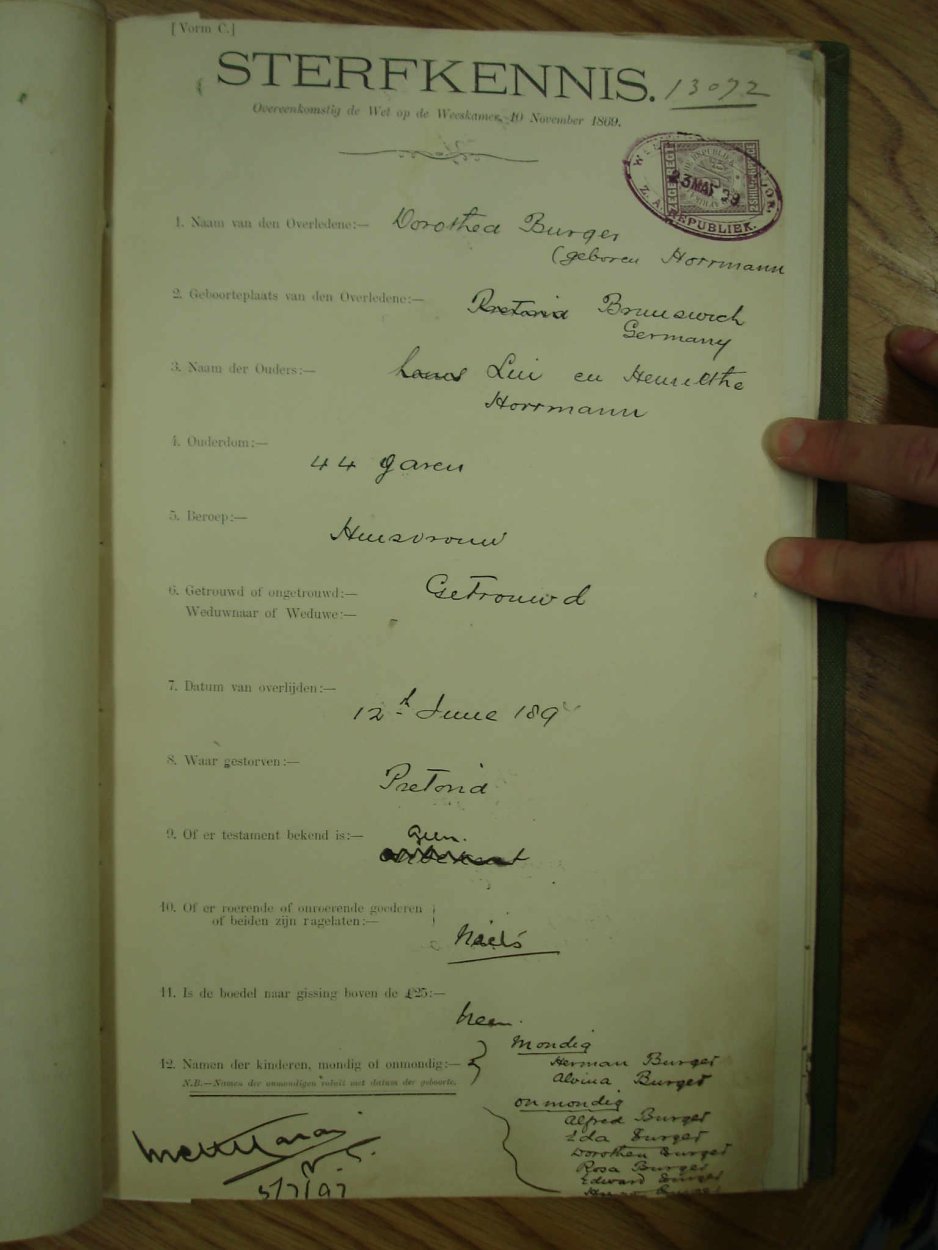 [Vorm C.]
STERFKENNIS. 13092
Overeenkomstig de Wet op de Weeskamer, 10 November 1869.
Z. A. REPUBLIEK.
23 MAI
1. Naam van den Overledene:— Dorothea Burger
(geboren Horrmann
2. Geboorteplaats van den Overledene:— Pretoria Brunswich
Germany
3. Naam der Ouders:— Lui en Henriethe
Horrmann
4. Ouderdom:—
44 Jaren
5. Beroep:—
Huisvrouw
6. Getrouwd of ongetrouwd:— Getrouwd
Weduwnaar of Weduwe:—
7. Datum van overlijden:—
12th June 189
8. Waar gestorven:—
Pretoria
9. Of er testament bekend is:— Geen.
10. Of er roerende of onroerende goederen
of beiden zijn nagelaten:—
Niets
11. Is de boedel naar gissing boven de £25:—
Neen.
12. Namen der kinderen, mondig of onmondig:—
N.B.—Namen der onmondigen voluit met datum der geboorte.
Mondig
Herman Burger
Alvina Burger
onmondig
Alfred Burger
Eda Burger
Dorothea Burger
Rosa Burger
Edward Burger
Burger
5/7/97